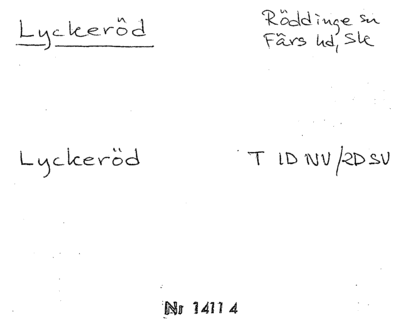 Lyckeröd
Röddinge sn
Färs hd, Sk
Lyckeröd
T 1D NV/2D SV
Nr 1411 4